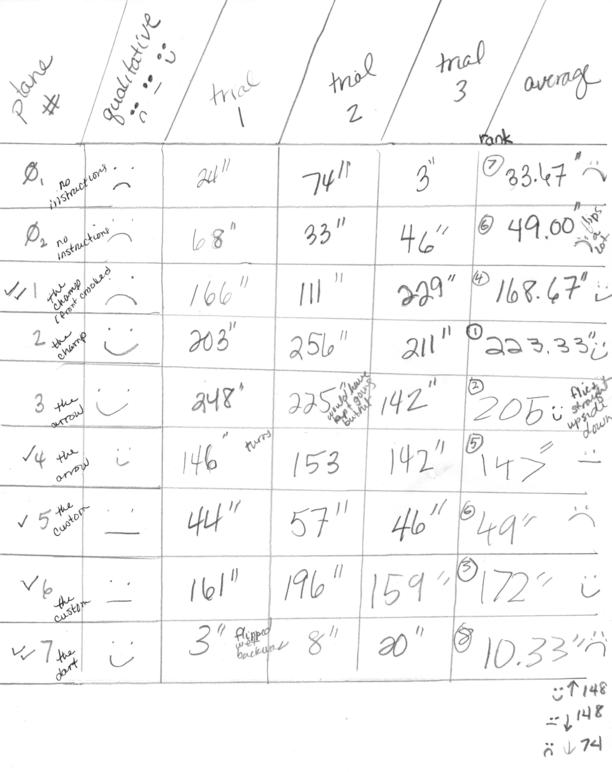 plane # qualitative trial 1 trial 2 trial 3 average
rank
Ø1 no instructions 24" 74" 3" ⑦ 33.67"
Ø2 no instructions 68" 33" 46" ⑥ 49.00" flips a lot
✓✓1 the champ (front crooked) 166" 111" 229" ④ 168.67"
2 the champ 203" 256" 211" ① 223.33"
3 the arrow 248" 225" would have kept going but hit 142" ② 205 flies straight upside down
✓4 the arrow 146" turns 153 142" ⑤ 147"
✓5 the custom 44" 57" 46" ⑥ 49"
✓6 the custom 161" 196" 159" ③ 172"
✓✓7 the dart 3" flipped went backwards 8" 20" ⑧ 10.33"
↑148
↓148
↓74